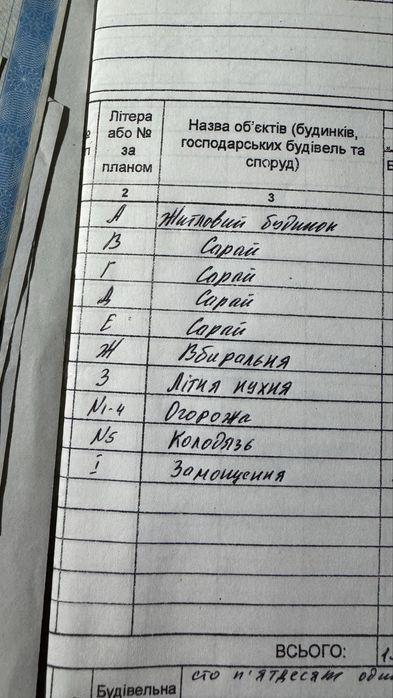 Літера або № за планом
Назва об'єктів (будинків, господарських будівель та споруд)
2 3
А Житловий будинок
В Сарай
Г Сарай
Д Сарай
Е Сарай
Ж Вбиральня
З Літня кухня
N1-4 Огорожа
N5 Колодязь
I Замощення
ВСЬОГО:
сто п'ятдесят
Будівельна